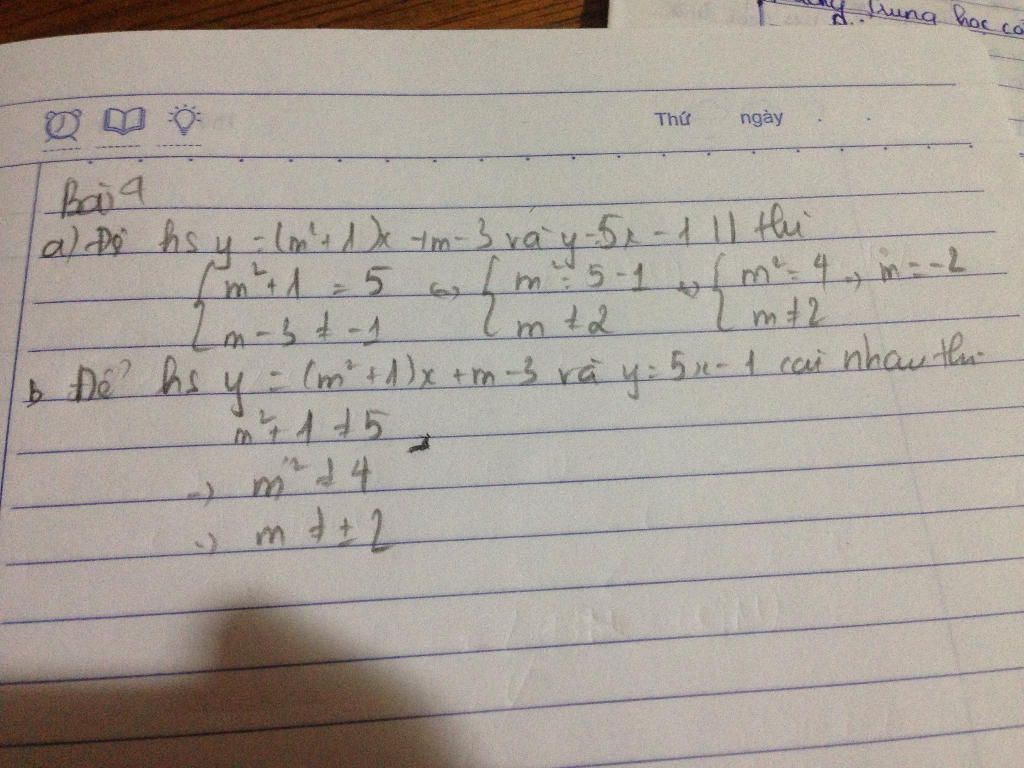 trung học cơ
Thứ ngày . .
Bài 4
a) Để hs y = (m²+1)x + m - 3 và y = 5x - 1 || thì
{ m² + 1 = 5 ⇔ { m² = 5 - 1 ⇔ { m² = 4 → m = -2
{ m - 3 ≠ -1 { m ≠ 2 { m ≠ 2
b Để hs y = (m² + 1)x + m - 3 và y = 5x - 1 cắt nhau thì
m² + 1 ≠ 5
→ m² ≠ 4
→ m ≠ ± 2